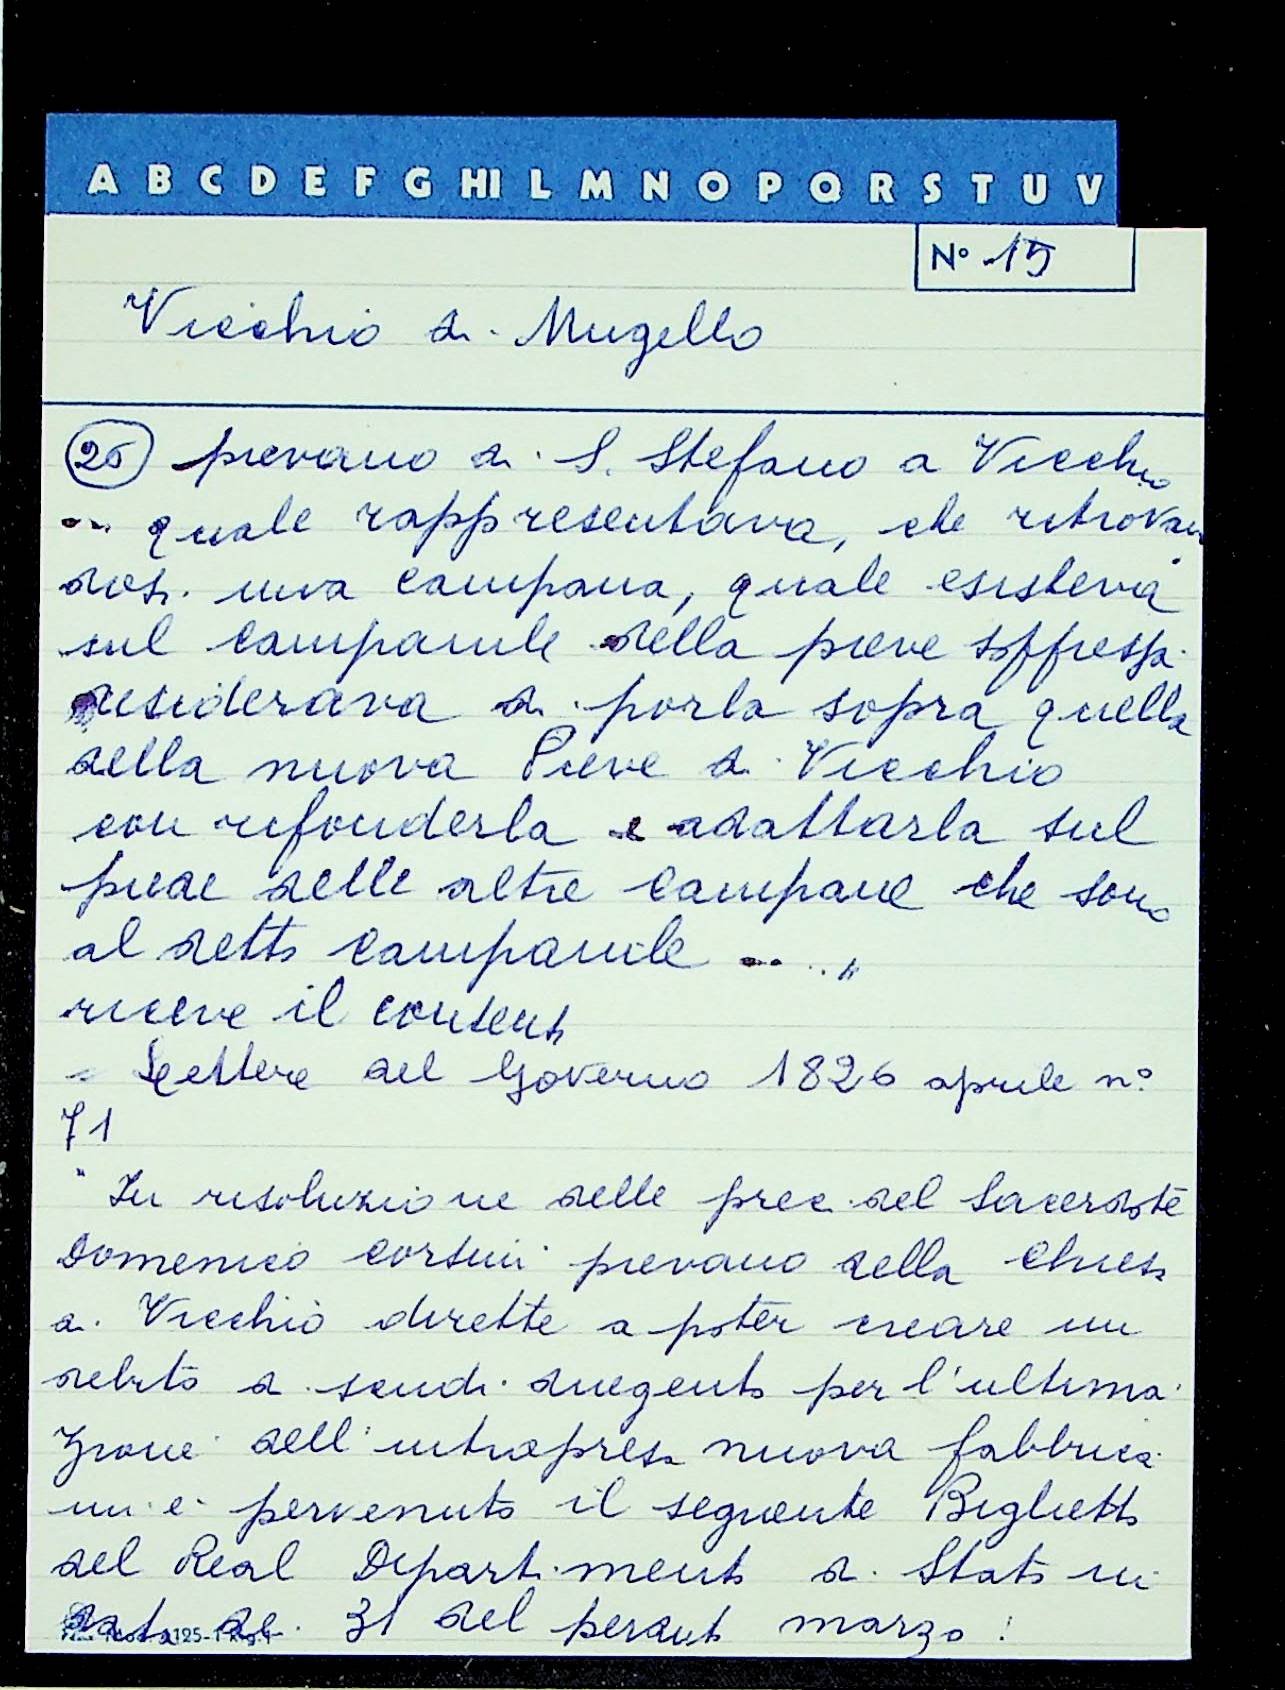 A B C D E F G HI L M N O P Q R S T U V
N° 15
Vicchio di Mugello
26 pievano di S. Stefano a Vicchio
... quale rappresentava, che ritrovan
dosi una campana, quale esisteva
sul campanile della pieve soppressa
desiderava di porla sopra quella
della nuova Pieve di Vicchio
con rifonderla e adattarla sul
piede delle altre campane che sono
al detto campanile ... "
riceve il consenso
Lettere del Governo 1826 aprile n°
71
" In risoluzione delle preci del Sacerdote
Domenico Corsini pievano della Chiesa
di Vicchio dirette a poter creare un
debito di scudi dugento per l'ultima
zione dell'intrapresa nuova fabbrica
mi è pervenuto il seguente Biglietto
del Real Dipartimento di Stato in
data de 31 del perduto marzo :